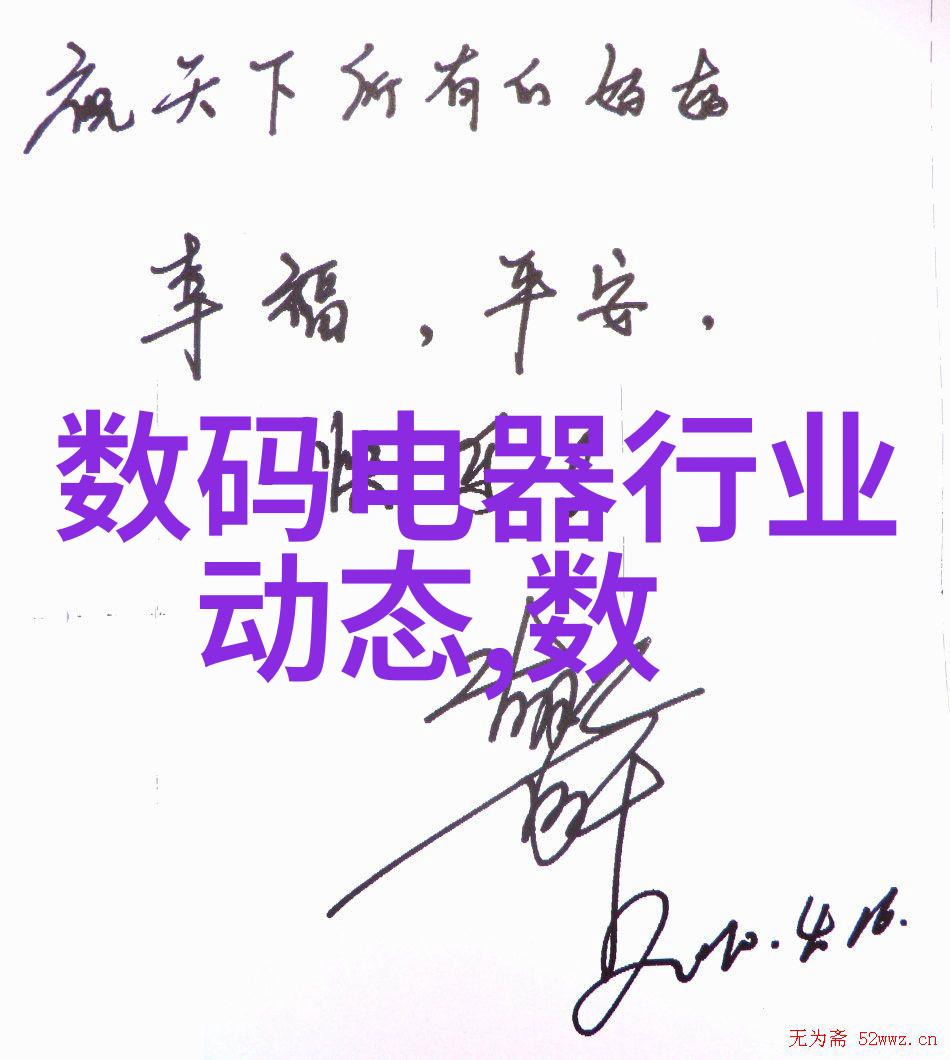 祝天下所有的妈妈
幸福，平安，
数码电器行业
动态,数
2010.4.16.
无为斋 52wwz.cn